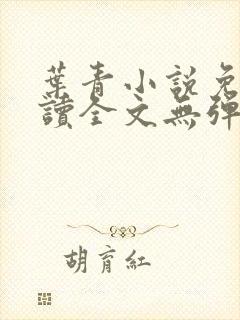 葉青小說免
讀全文無彈
胡育紅